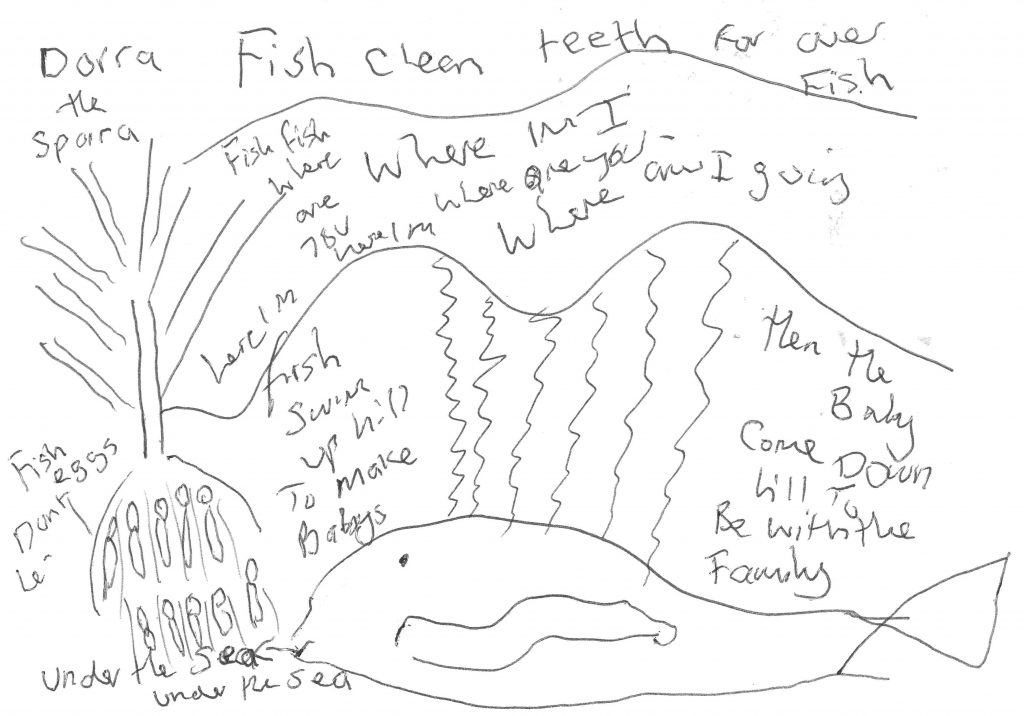 Dorra
the
Sparra
Fish cleen teeth For over
Fish
Fish fish
where
are
you
here Im
where Im I
where are you
where am I going
here Im
fish
Swim
up hill
To make
Babys
then the
Baby
Come Down
hill To
Be with the
Family
Fish
eggs
Dont
under the sea
under the sea